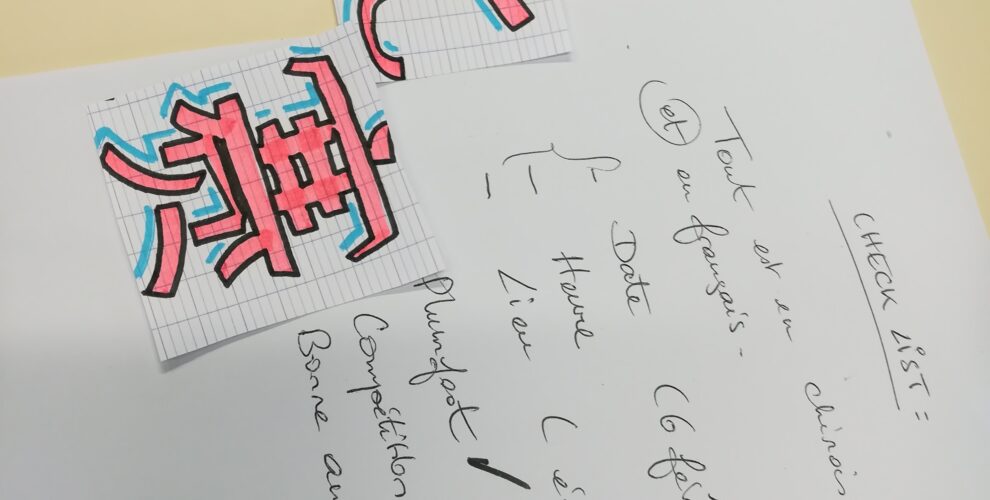 CHECK LIST :
Tout est en chinois
et en français.
Date (6
Heure
Lieu (
Plumfoot ✓
Compétition
Bonne
赛